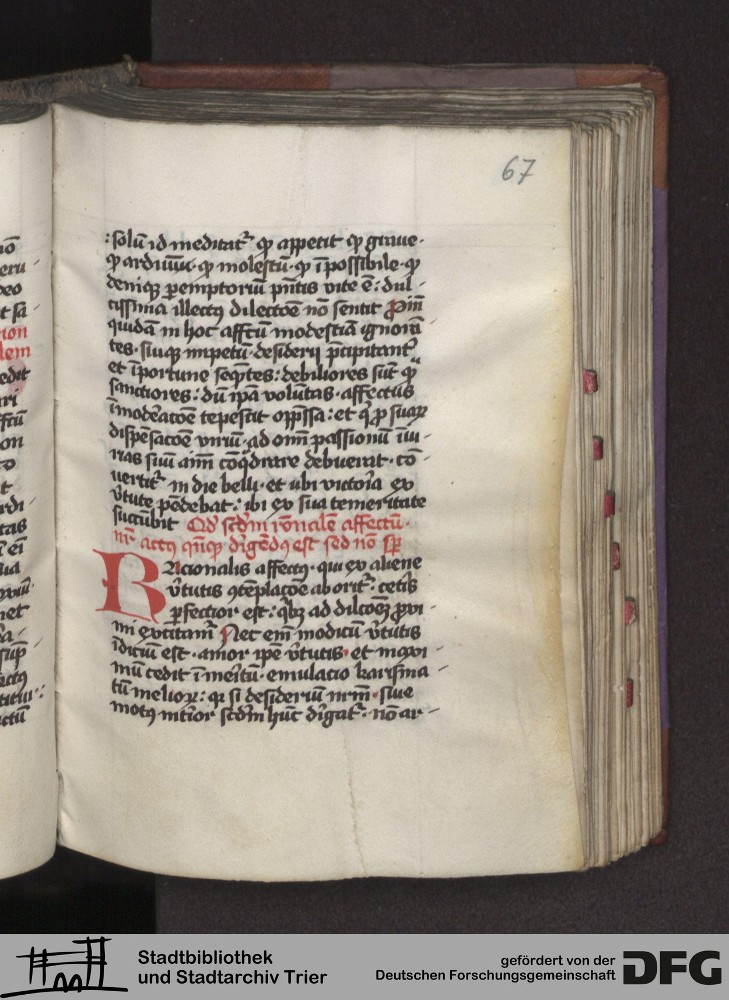 67
:solū id meditat᷑ qᷓ appetit qᷓ graue·
qᷓ arduuū· qᷓ molestū· qᷓ īpossibile· qᷓ
deniqꝫ ꝑemptoriū pn̄tis vite ē: dul-
cissima illectus dilectōe nō sentit
quidā in hoc affctū modestiā ignorā
tes· siuqꝫ impetū· desiderij p̄cipitant᷑
et īportune seqn̄tes: debiliores sūt
sanctiores: dū ipā volūtas· affectus
īmodēatōe tepescit opp̄ssa: et
dispēsacōe viriū· ad om̄ passionū iniu-
rias suū aīm debuerat· cō-
uertit᷑ in die belli· et ubi victoīa ex
v̄tute pēdebat: ibi ex sua temeritate
sucūbit Qd' scd̄m rōnalē affectū·
nr̄ actꝰ dīgēdꝰ est sed nō sꝑ
Racionalis affectꝰ· qui ex aliene
v̄tutis ꝯtēplacōe aborit᷑· cetīs
ꝑfectior est: qͥbꝫ ad dilcōeꝫ ꝓxi-
mi excitam᷑ Nec em̄ modicū v̄tutis
īdiciū est· amor ip̄e v̄tutis· et maxi-
mū cedit ī meītū· emulacio karisma
tū melioꝝ: qꝛ si desideriū nr̄m· siue
motꝰ intīor scd̄m hūc dīgat᷑· nō ar-
Stadtbibliothek
und Stadtarchiv Trier
gefördert von der
Deutschen Forschungsgemeinschaft
DFG